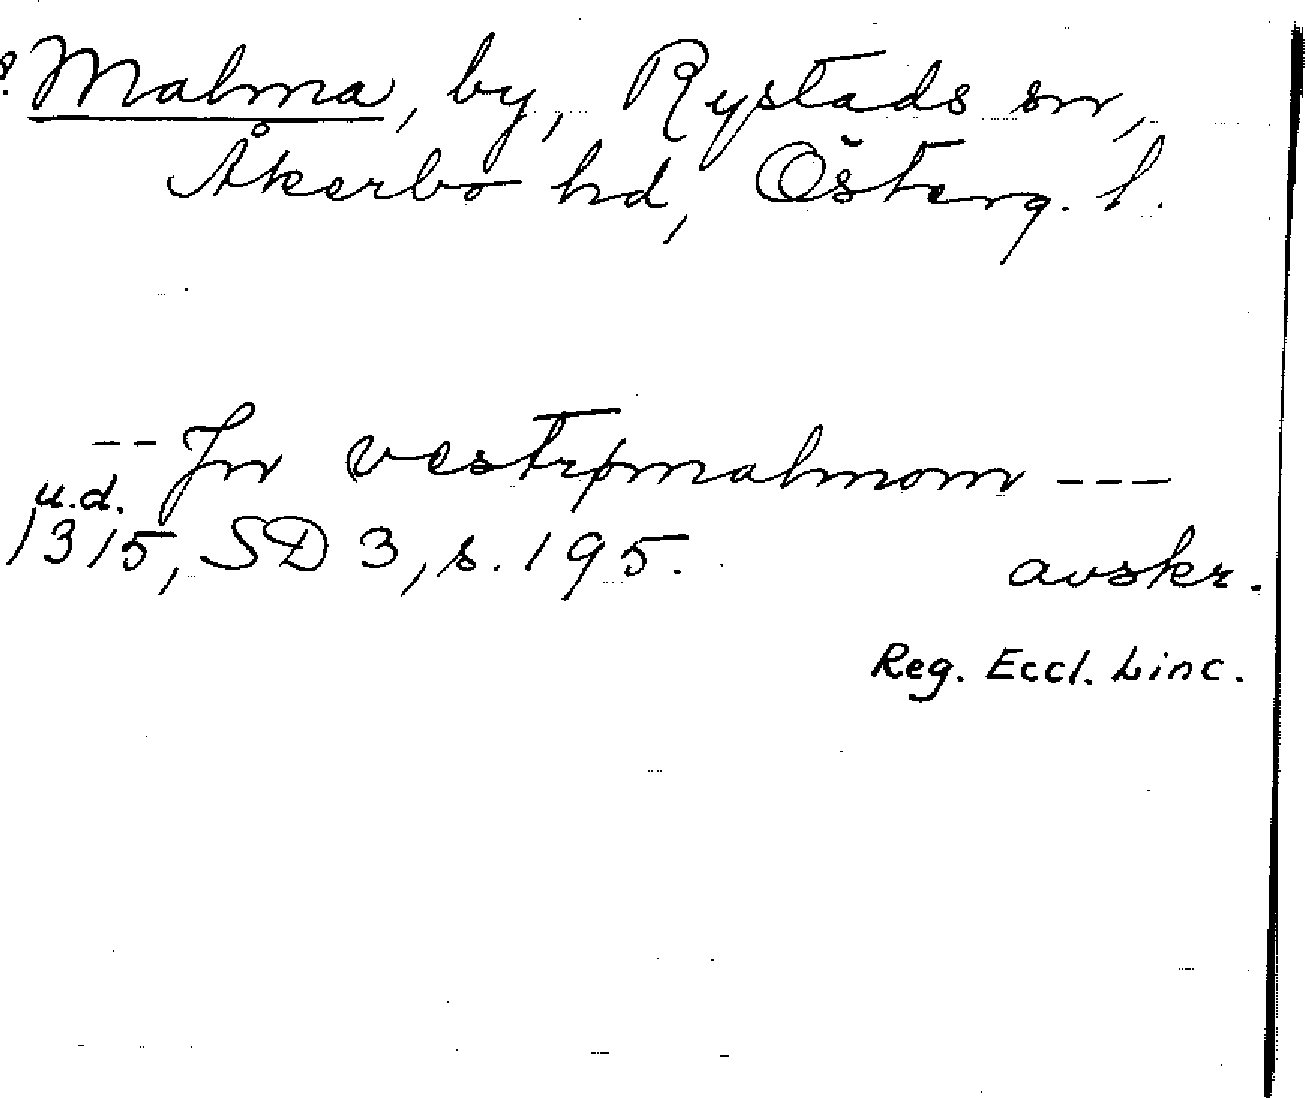 ? Malma, by, Rystads sn,
Åkerbo hd, Österg. l.
-- Jn vestrpmalmom ---
u.d.
1315, SD 3, s. 195.
avskr.
Reg. Eccl. Linc.